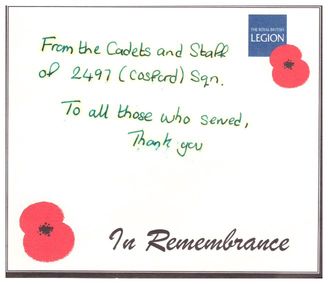 THE ROYAL BRITISH
LEGION
From the Cadets and Staff
of 2497 (Cosford) Sqn.
To all those who served,
Thank you
In Remembrance